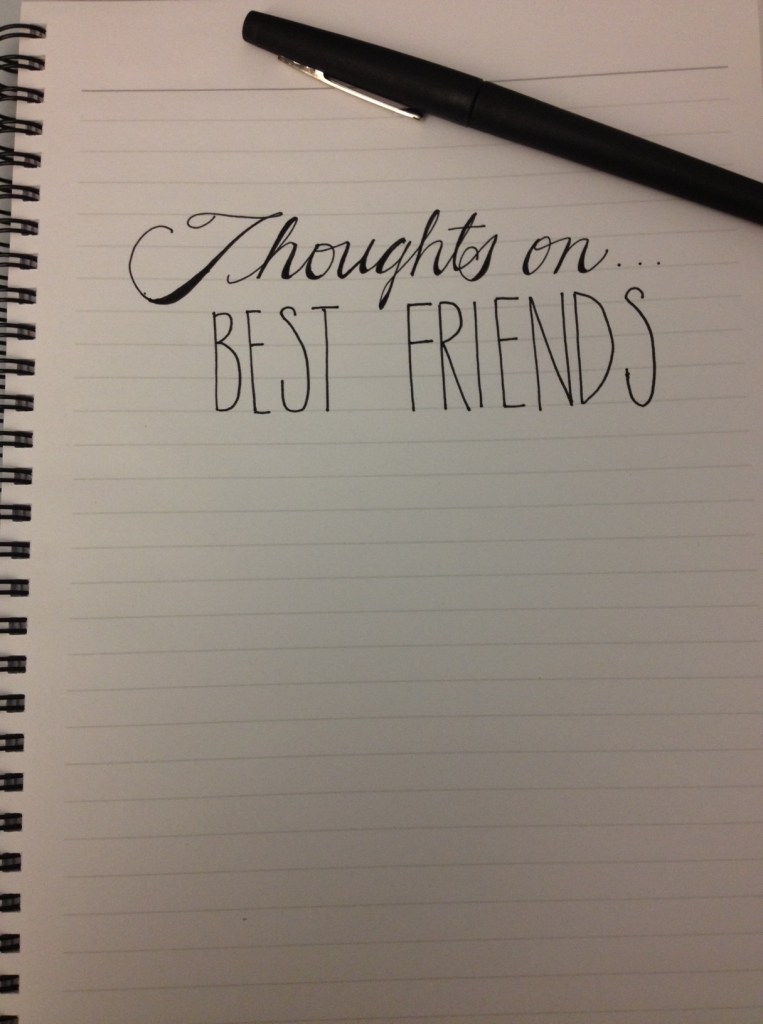 Thoughts on...
BEST FRIENDS